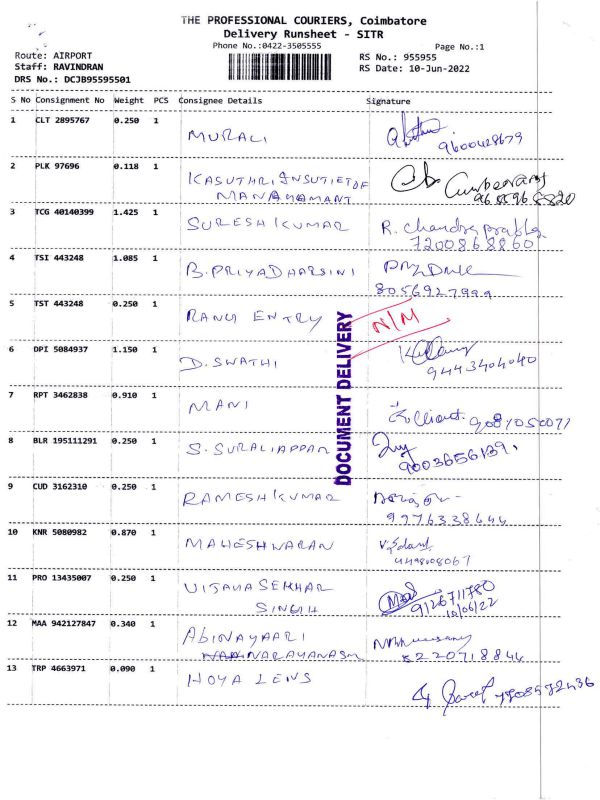 THE PROFESSIONAL COURIERS, Coimbatore
Delivery Runsheet - SITR
Phone No.:0422-3505555
Page No.:1
Route: AIRPORT
RS No.: 955955
Staff: RAVINDRAN
RS Date: 10-Jun-2022
DRS No.: DCJB95595501
S No Consignment No Weight PCS Consignee Details Signature
1 CLT 2895767 0.250 1 MURALI
9600428679
2 PLK 97696 0.118 1 KASUTHRI INSUTIET OF
MANAGAMANT
3 TCG 40140399 1.425 1 SURESH KUMAR R. Chandra prabha
7200868860
4 TSI 443248 1.085 1 B. PRIYADHARSINI
8056927999
5 TST 443248 0.250 1 RANG ENTRY N/M
DOCUMENT DELIVERY
6 DPI 5084937 1.150 1 D. SWATHI
9443404040
7 RPT 3462838 0.910 1 MANI
9087050077
8 BLR 195111291 0.250 1 S. SURALIAPPAN
9003656139.
9 CUD 3162310 0.250 1 RAMESH KUMAR
9976338644
10 KNR 5080982 0.870 1 MAHESHWARAN
11 PRO 13435007 0.250 1 VIJAYA SEKHAR
SINGH
9126711780
10/06/22
12 MAA 942127847 0.340 1 ABINAYAARI
NARAYANASM
13 TRP 4663971 0.090 1 HOYA LENS